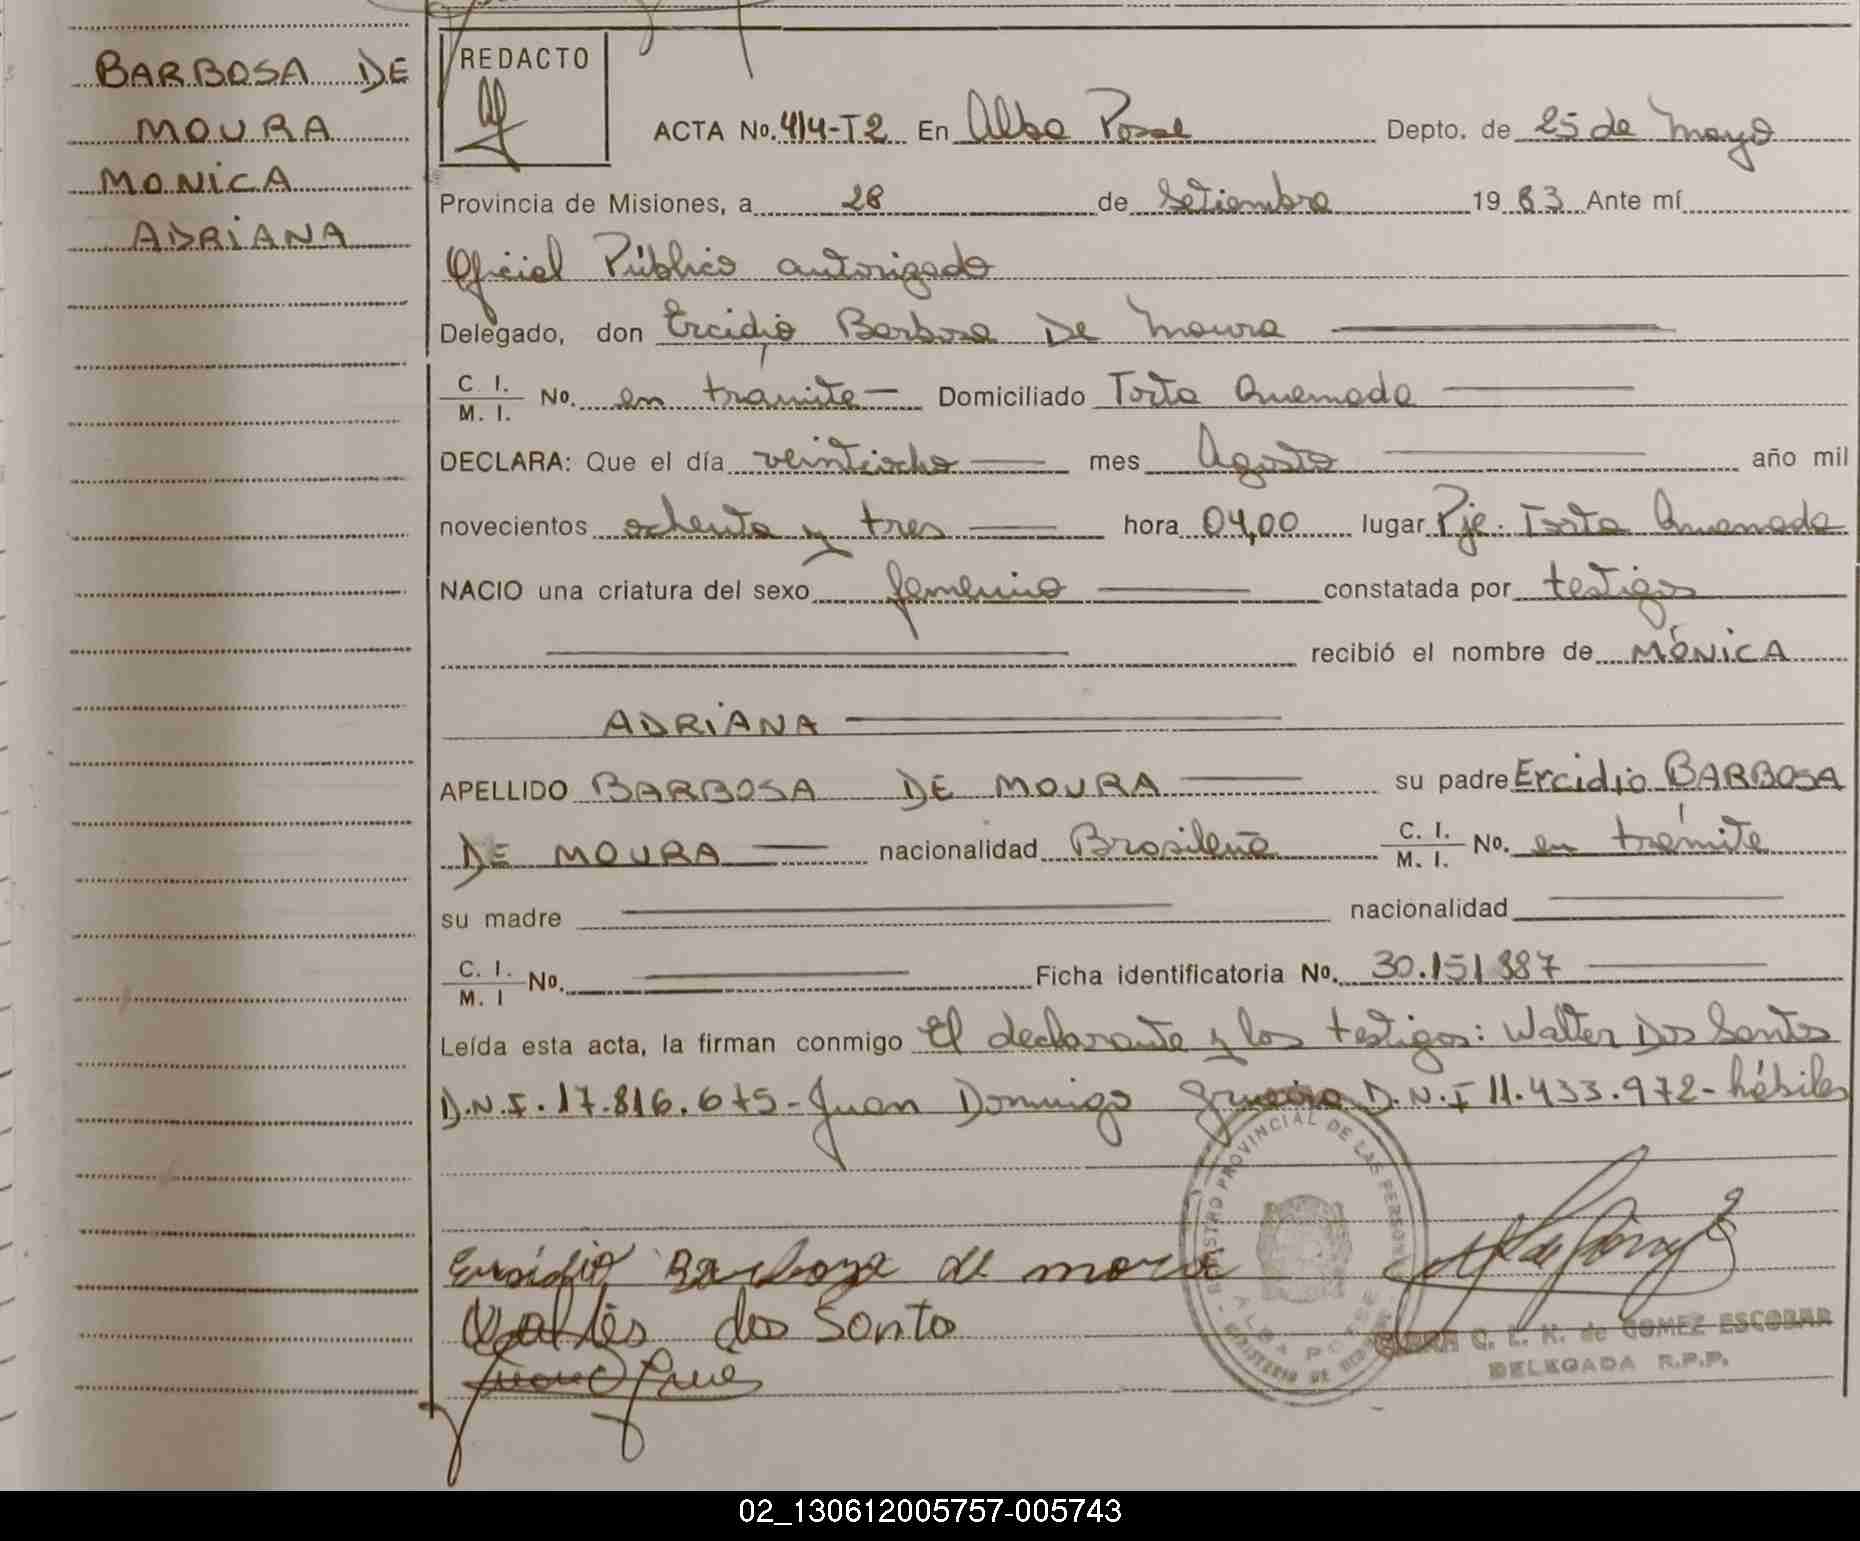 BARBOSA DE
MOURA
MONICA
ADRIANA
REDACTO
ACTA No. 414-T2 En Alba Posse Depto. de 25 de Mayo
Provincia de Misiones, a 28 de Setiembre 19 83 Ante mí
Oficial Público autorizado
Delegado, don Ercidio Barbosa De Moura
C. I.
M. I. No. en trámite Domiciliado Torta Quemada
DECLARA: Que el día veintiocho mes Agosto año mil
novecientos ochenta y tres hora 04,00 lugar Pje. Torta Quemada
NACIO una criatura del sexo femenino constatada por testigos
recibió el nombre de MÓNICA
ADRIANA
APELLIDO BARBOSA DE MOURA su padre Ercidio BARBOSA
DE MOURA nacionalidad Brasileña C. I.
M. I. No. en trámite
su madre nacionalidad
C. I.
M. I No. Ficha identificatoria No. 30.151.887
Leída esta acta, la firman conmigo El declarante y los testigos: Walter Dos Santos
D.N.I. 17.816.675- Juan Domingo D.N.I 11.433.972- hábiles
de
dos Santo
REGISTRO PROVINCIAL DE LAS PERSONAS
ALBA POSSE
MINISTERIO DE GOBIERNO
C. E. K. de GOMEZ ESCOBAR
DELEGADA R.P.P.
02_130612005757-005743